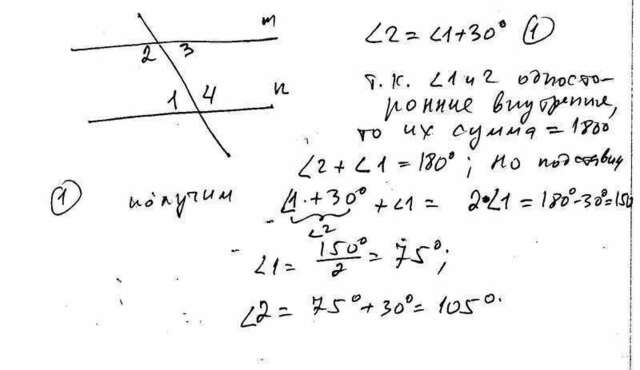 m
2 3
1 4
n
∠2 = ∠1+30° ①
т.к. ∠1 и 2 односто-
ронние внутрение,
то их сумма = 180°
∠2 + ∠1 = 180°; но подставив
① получим ∠1 + 30° + ∠1 = 2•∠1 = 180°-30°=150
∠2
∠1 = 150°/2 = 75°;
∠2 = 75° + 30° = 105°.